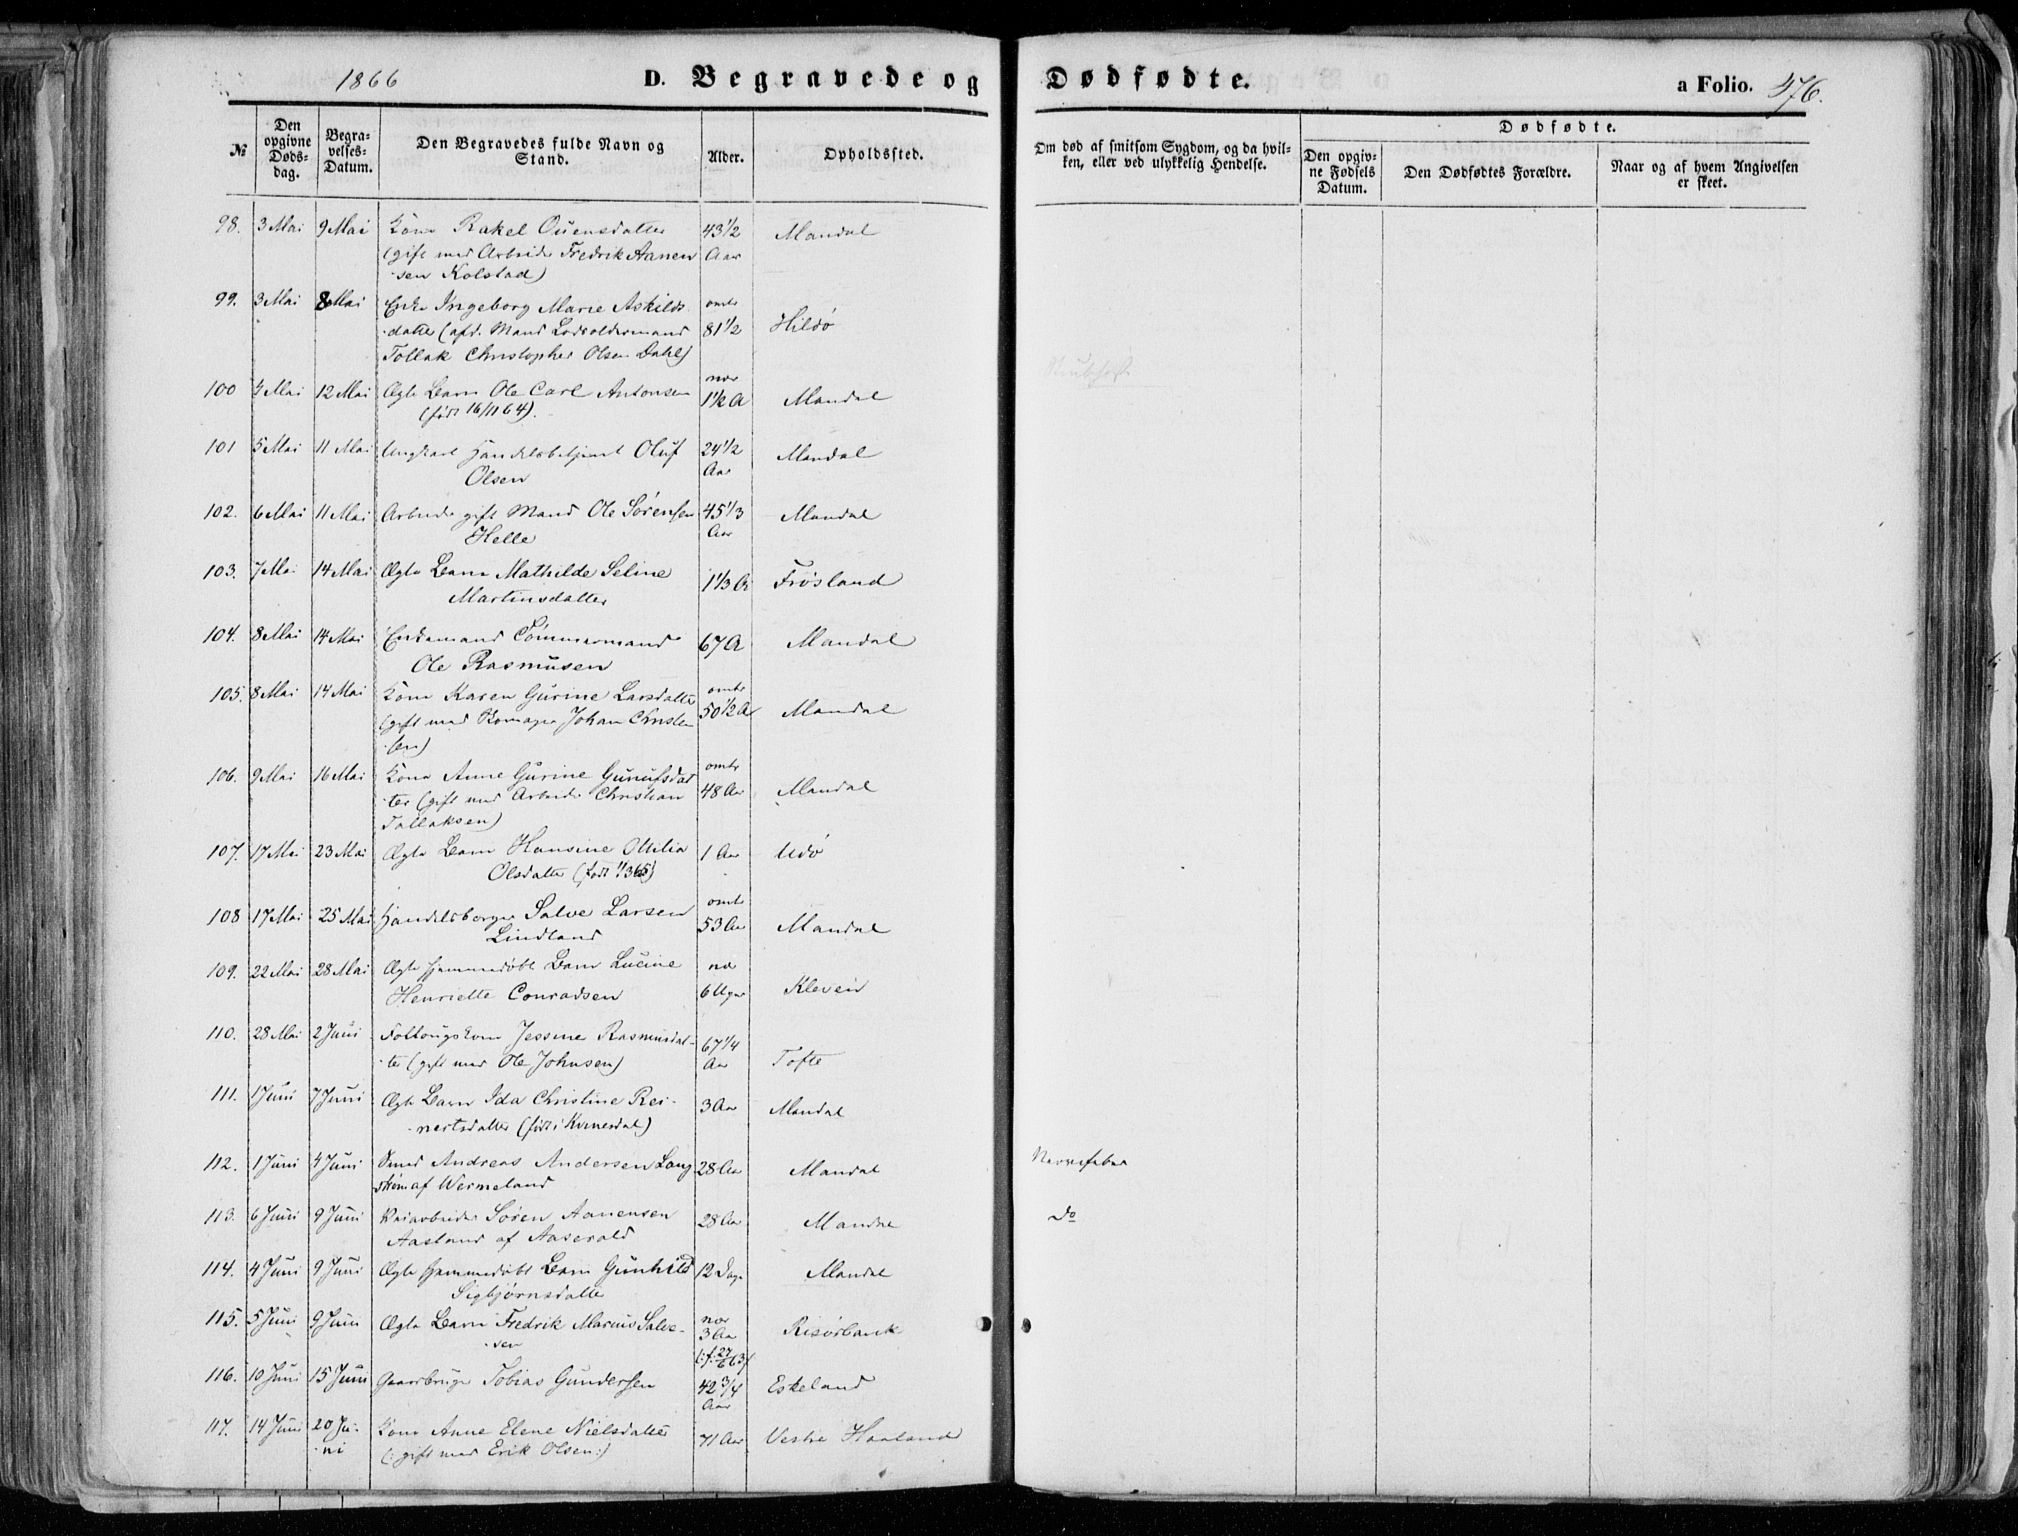 1866 D. Begravede og Dødfødte. a Folio. 476.
№ Den opgivne Døds-dag. Begra-velses-Datum. Den Begravedes fulde Navn og Stand. Alder. Opholdssted. Om død af smitsom Sygdom, og da hvil-ken, eller ved ulykkelig Hendelse. Dødfødte. Den opgiv-ne Fødsels Datum. Den Dødfødtes Forældre. Naar og af hvem Angivelsen er skeet.
98. 3 Mai 9 Mai Kone Rakel Ouensdatter 43 1/2 Mandal
(gift med Arbeider Fredrik Aanen Aar
sen Kolstad)
99. 3 Mai 8 Mai Enke Ingeborg Marie Askilds omtr
datter (afd. Mand Lodsoldermand 81 1/2 Hildø
Tollak Christopher Olsen Dahl)
100 4 Mai 12 Mai Ægte Barn Ole Carl Antonsen nær 1 1/2 A Mandal
(født 16/11 64).
101 5 Mai 11 Mai Ungkarl Handelsbetjent Oluf 24 1/2 Mandal
Olsen Aar
102. 6 Mai 11 Mai Arbeider gift Mand Ole Sørensen 45 1/3 Mandal
Helle Aar
103. 7 Mai 14 Mai Ægte Barn Mathilde Seline 1 1/3 A Frøsland
Martinsdatter
104. 8 Mai 14 Mai Enkemand Tømmermand 67 A Mandal
Ole Rasmusen
105. 8 Mai 14 Mai Kone Karen Gurine Larsdatter omtr
(gift med Skomager Johan Christen 50 1/2 A Mandal
sen)
106. 9 Mai 16 Mai Kone Anne Gurine Gunufsdat omtr
ter (gift med Arbeider Christian 48 Aar Mandal
Tallaksen)
107. 17 Mai 23 Mai Ægte Barn Hansine Ottilia 1 Aar Udø
Olsdatter (født 1/3 65)
108 17 Mai 25 Mai Handelsborger Salve Larsen omtr
Lindland 53 Aar Mandal
109. 22 Mai 28 Mai Ægte hjemmedøbt Barn Lucine nær
Henriette Conradsen 6 Uger Kleven
110. 28 Mai 2 Juni Føllougskone Jessine Rasmusdat- 67 1/4
ter (gift med Ole Johnsen) Aar Tofte
111. 1 Juni 7 Juni Ægte Barn Ida Christine Rei- 3 Aar Mandal
nertsdatter (født i Kvinesdal)
112. 1 Juni 4 Juni Smed Andreas Andersen Lang 28 Aar Mandal Nervefeber
strøm af Wermeland
113. 6 Juni 9 Juni Veiarbeider Søren Aanensen 28 Aar Mandal Do
Aasland af Aaserald
114. 4 Juni 9 Juni Ægte hjemmedøbt Barn Gunhild 12 Dage Mandal
Sigbjørnsdatter
115. 5 Juni 9 Juni Ægte Barn Fredrik Marius Salve- nær 3 Aar Risørbank
sen (:f. 27/6 63)
116. 10 Juni 15 Juni Gaardbruger Tobias Gundersen 42 3/4 Aar Eskeland
117. 14 Juni 20 Ju- Kone Anne Elene Nielsdatter 71 Aar Vestre Haaland
ni (: gift med Erik Olsen:)